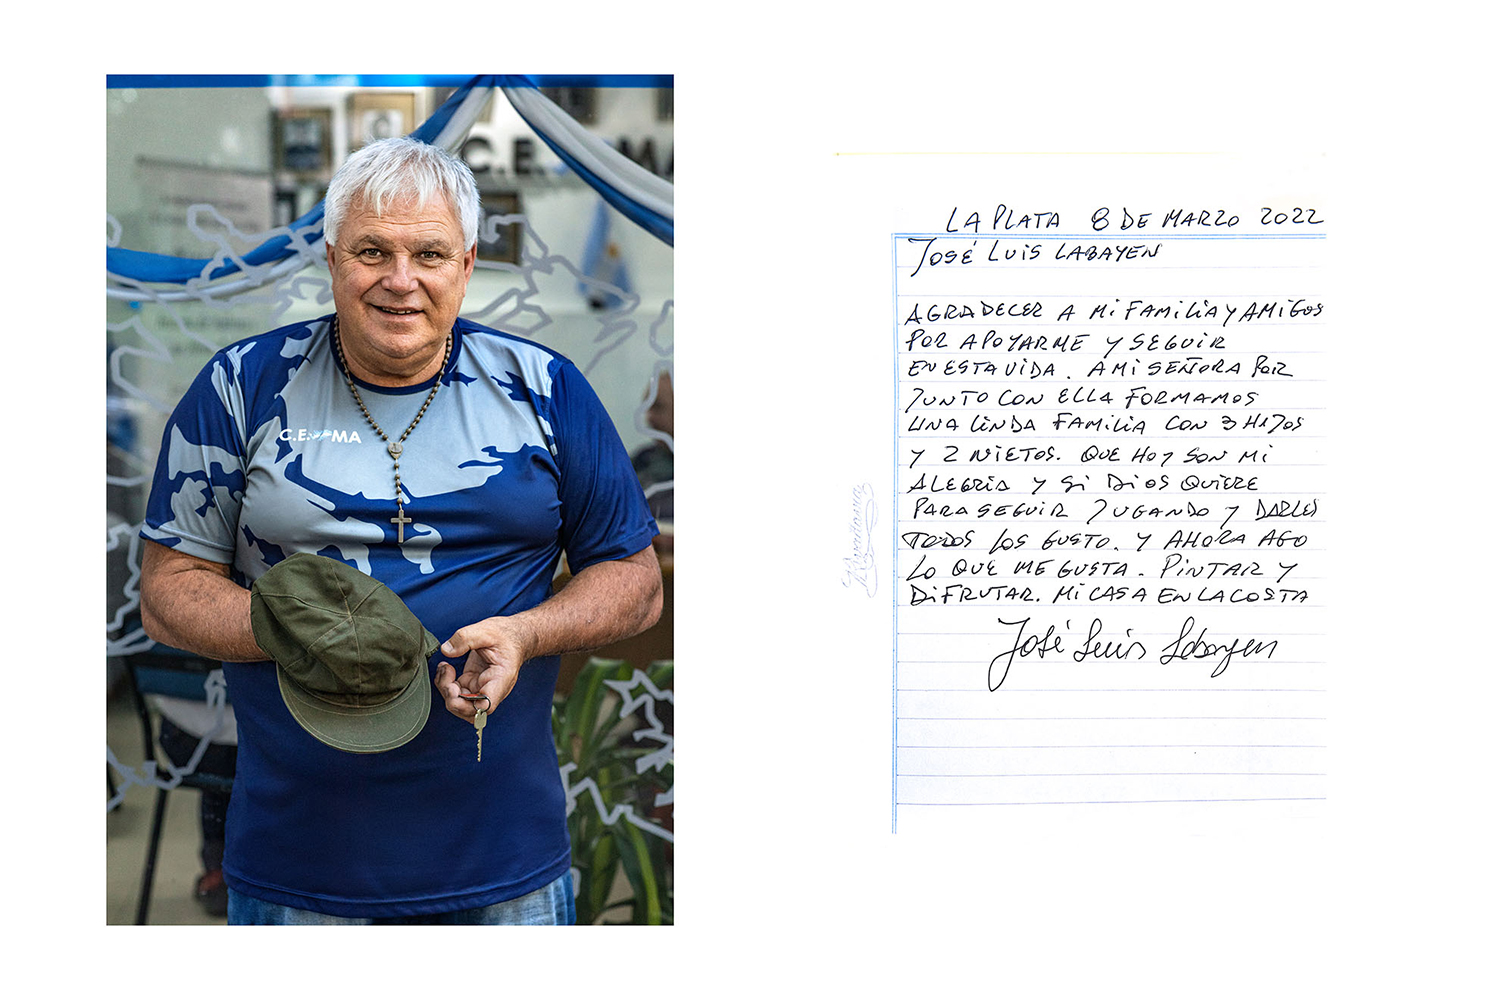 C.E. MA
C.E. MA
LA PLATA 8 DE MARZO 2022
JOSÉ LUIS LABAYEN
AGRADECER A Mi FAMiLiA Y AMiGOS
POR APOYARME Y SEGUIR
EN ESTA ViDA. A Mi SEÑORA POR
JUNTO CON ELLA FORMAMOS
UNA LiNDA FAMiLiA CON 3 HiJOS
Y 2 NiETOS. QUE HOY SON Mi
ALEGRiA Y Si DiOS QUiERE
PARA SEGUiR JUGANDO Y DARLES
TODOS LOS GUSTO. Y AHORA AGO
LO QUE ME GUSTA. PiNTAR Y
DiFRUTAR. Mi CASA EN LA COSTA
José Luis Labayen
Rivadavia